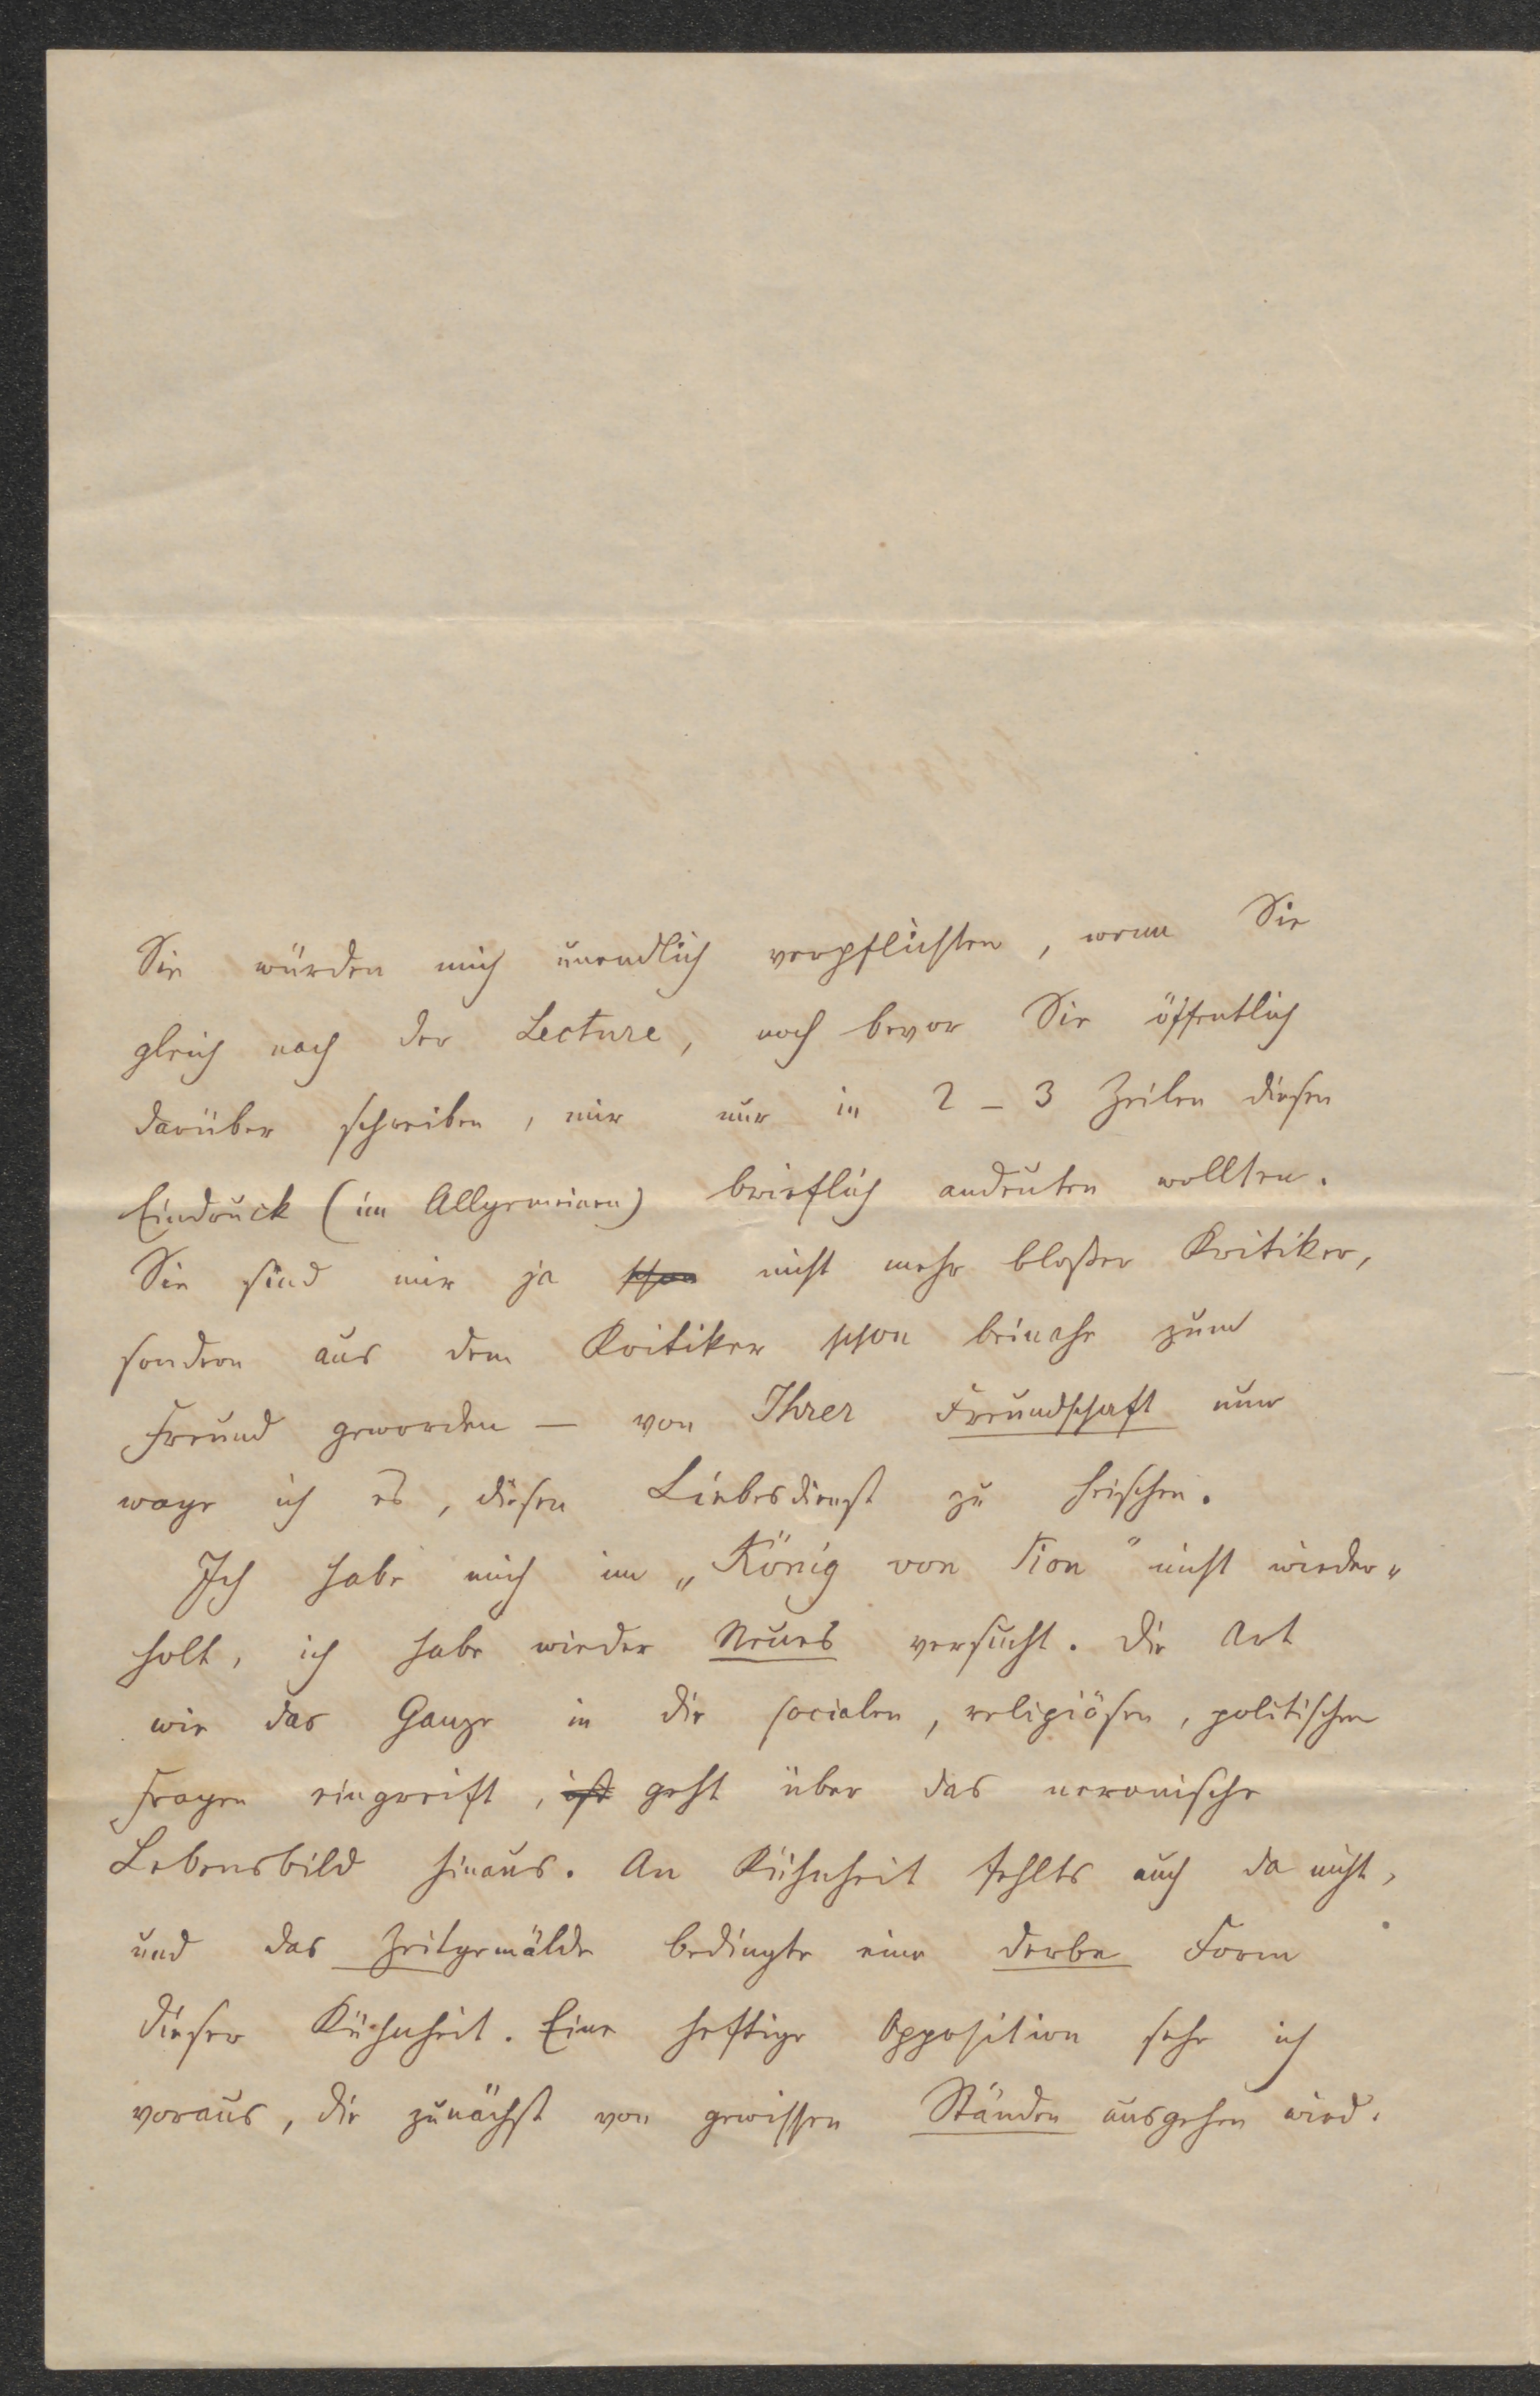 Sie würden mich unendlich verpflichten, wenn Sie
gleich nach der Lecture, noch bevor Sie öffentlich
darüber schreiben, mir nur in 2 – 3 Zeilen diesen
Eindruck (im Allgemeinen) brieflich andeuten wollten.
Sie sind mir ja schon nicht mehr bloßer Kritiker,
sondern aus dem Kritiker schon beinahe zum
Freund geworden — von Ihrer Freundschaft nur
wage ich es, diesen Liebesdienst zu heischen.
Ich habe mich im „König von Sion" nicht wieder„
holt, ich habe wieder Neues versucht. Die Art
wie das Ganze in die socialen, religiösen, politischen
Fragen eingreift, ist geht über das neronische
Lebensbild hinaus. An Kühnheit fehlts auch da nicht,
und das Zeitgemälde bedingte eine derbe Form
dieser Kühnheit. Eine heftige Opposition sehe ich
voraus, die zunächst von gewissen Ständen ausgehen wird.